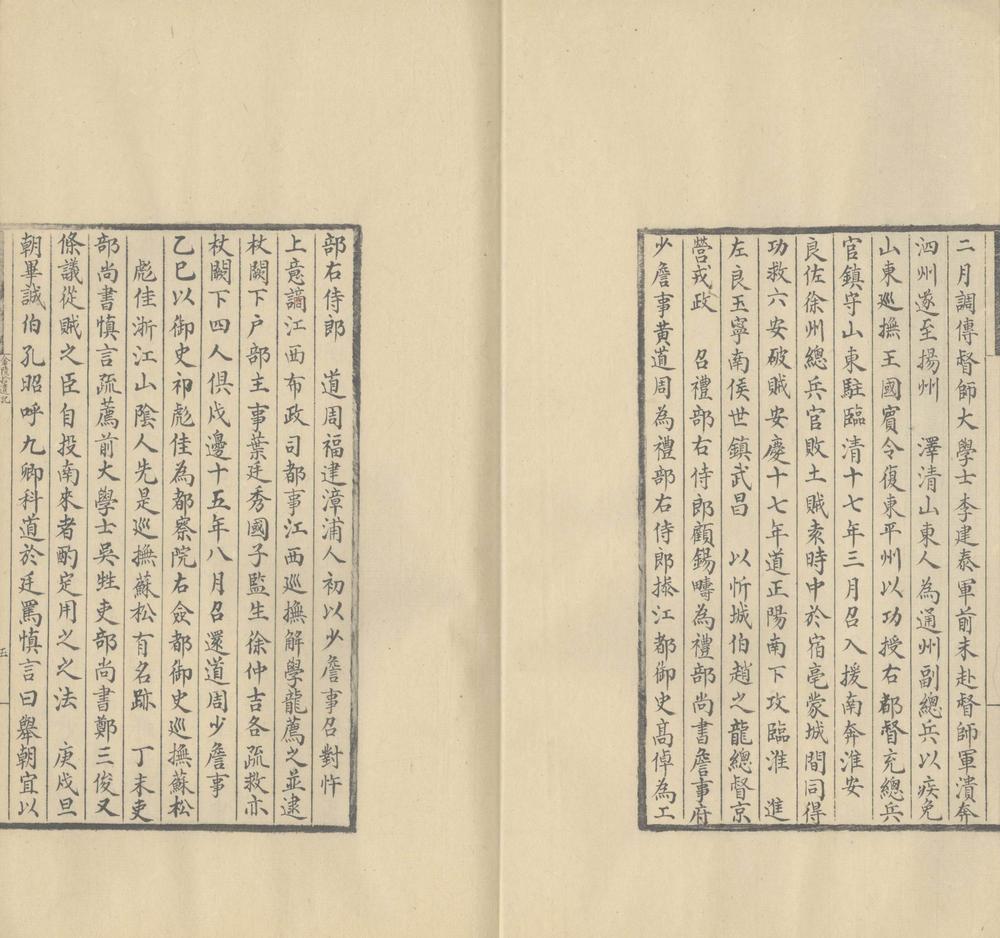 二月調傳督師大學士李建泰軍前未赴督師軍潰奔
泗州遂至揚州　澤清山東人為通州副總兵以疾免
山東巡撫王國賓令復東平州以功授右都督充總兵
官鎮守山東駐臨清十七年三月召入援南奔淮安
良佐徐州總兵官敗土賊袁時中於宿亳蒙城間同得
功救六安破賊安慶十七年道正陽南下攻臨淮　進
左良玉寧南侯世鎮武昌　以忻城伯趙之龍總督京
營戎政　召禮部右侍郎顧錫疇為禮部尚書詹事府
少詹事黃道周為禮部右侍郎操江都御史高倬為工
部右侍郎　道周福建漳浦人初以少詹事召對忤
上意謫江西布政司都事江西巡撫解學龍薦之並逮
杖闕下户部主事葉廷秀國子監生徐仲吉各疏救亦
杖闕下四人俱戍邊十五年八月召還道周少詹事
乙巳以御史祁彪佳為都察院右僉都御史巡撫蘇松
彪佳浙江山陰人先是巡撫蘇松有名跡　丁未吏
部尚書慎言疏薦前大學士吳甡吏部尚書鄭三俊又
條議從賊之臣自投南來者酌定用之之法　庚戌旦
朝畢誠伯孔昭呼九卿科道於廷罵慎言曰舉朝宜以
五